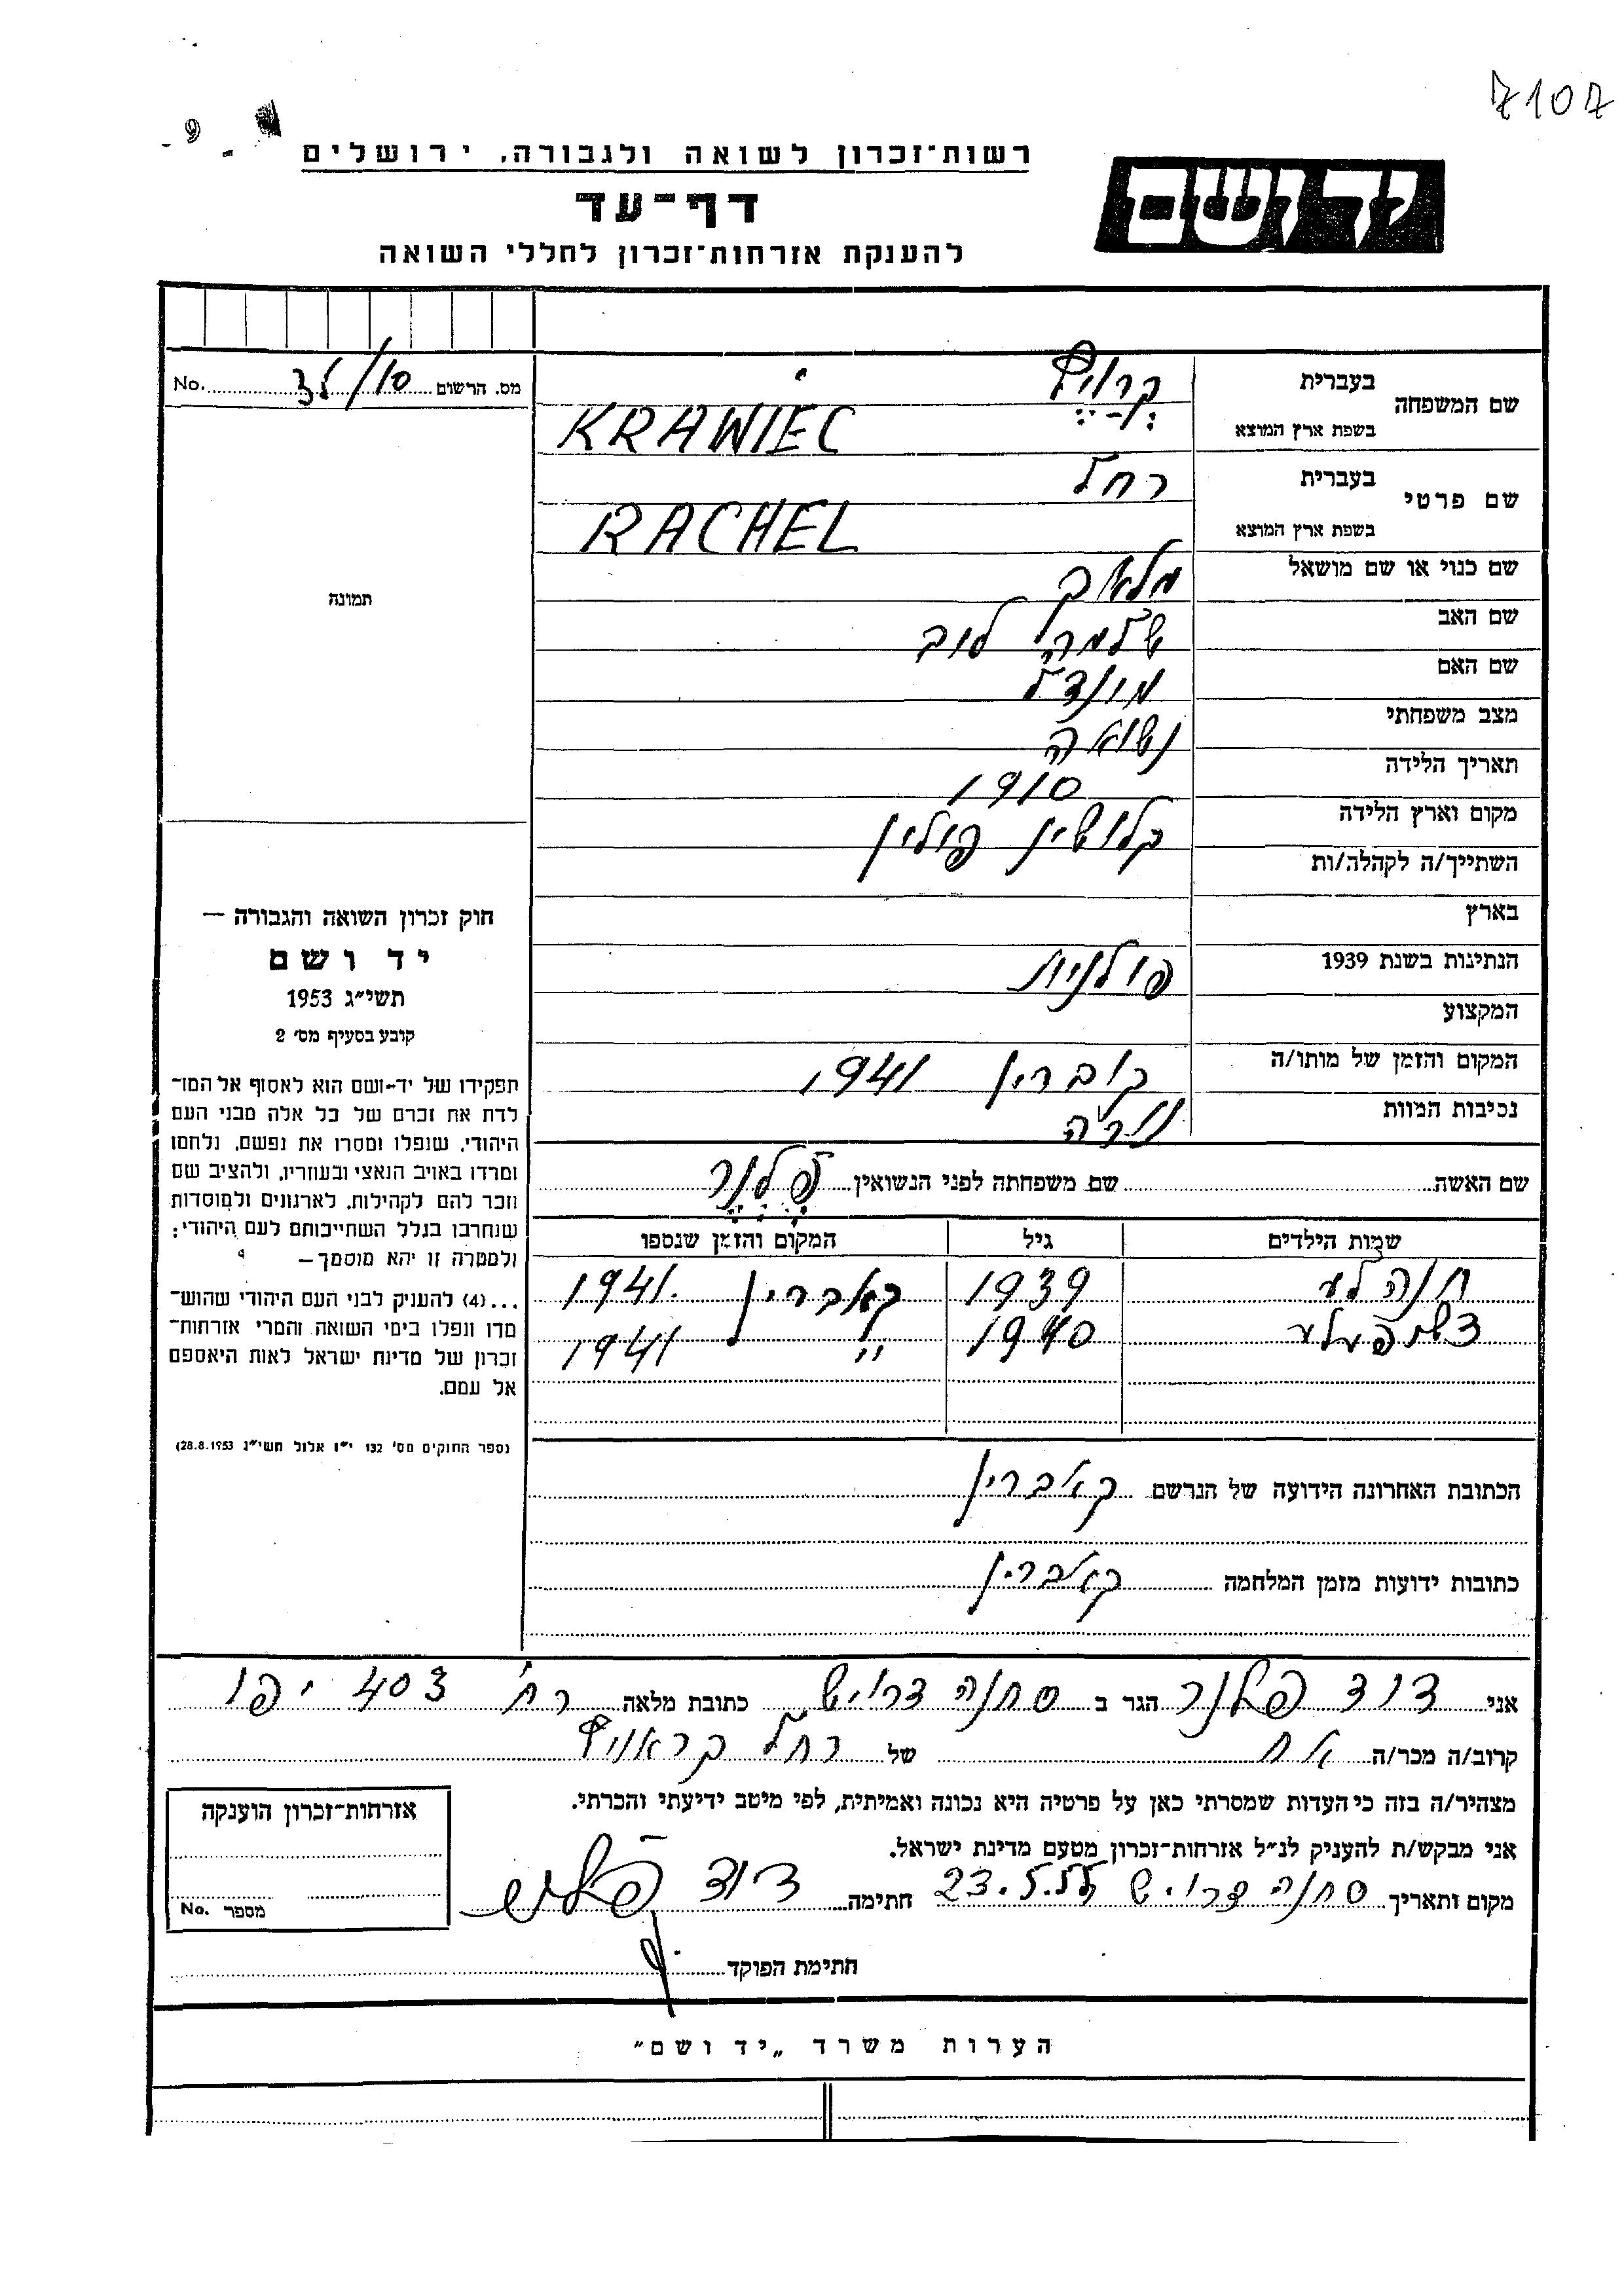 7107
רשות־זכרון לשואה ולגבורה, ירושלים
יד ושם
דף־עד
להענקת אזרחות־זכרון לחללי השואה
מס. הרשום No.
שם המשפחה
בעברית קרויץ
בשפת ארץ המוצא KRAWIEC
שם פרטי
בעברית רחל
בשפת ארץ המוצא RACHEL
שם כנוי או שם מושאל
שם האב שלמה לוב
שם האם מינדל
מצב משפחתי נשואה
תאריך הלידה 1910
מקום וארץ הלידה קלושין פולין
השתייך/ה לקהלה/ות
בארץ
הנתינות בשנת 1939 פולנית
המקצוע
המקום והזמן של מותו/ה קוברין 1941
נסיבות המוות
שם האשה שם משפחתה לפני הנשואין פלנר
שמות הילדים גיל המקום והזמן שנספו
חנה לע 1939 קאברין 1941
1940 " 1941
הכתובת האחרונה הידועה של הנרשם קאברין
כתובות ידועות מזמן המלחמה קאברין
תמונה
חוק זכרון השואה והגבורה —
יד ושם
תשי״ג 1953
קובע בסעיף מס׳ 2
תפקידו של יד־ושם הוא לאסוף אל המו־
לדת את זכרם של כל אלה מבני העם
היהודי, שנפלו ומסרו את נפשם, נלחמו
ומרדו באויב הנאצי ובעוזריו, ולהציב שם
וזכר להם לקהילות, לארגונים ולמוסדות
שנחרבו בגלל השתייכותם לעם היהודי;
ולמטרה זו יהא מוסמך —
...(4) להעניק לבני העם היהודי שהוש־
מדו ונפלו בימי השואה והמרי אזרחות־
זכרון של מדינת ישראל לאות היאספם
אל עמם.
(ספר החוקים מס׳ 132 י״ז אלול תשי״ג 28.8.1953)
אני דוד פלנר הגר ב סחנה דרויש כתובת מלאה רח׳ 403 יפו
קרוב/ה מכר/ה אח של רחל קראויץ
מצהיר/ה בזה כי העדות שמסרתי כאן על פרטיה היא נכונה ואמיתית, לפי מיטב ידיעתי והכרתי.
אני מבקש/ת להעניק לנ״ל אזרחות־זכרון מטעם מדינת ישראל.
מקום ותאריך סחנה דרויש 23.5.55 חתימה דוד
חתימת הפוקד
אזרחות־זכרון הוענקה
מספר No.
הערות משרד „יד ושם״